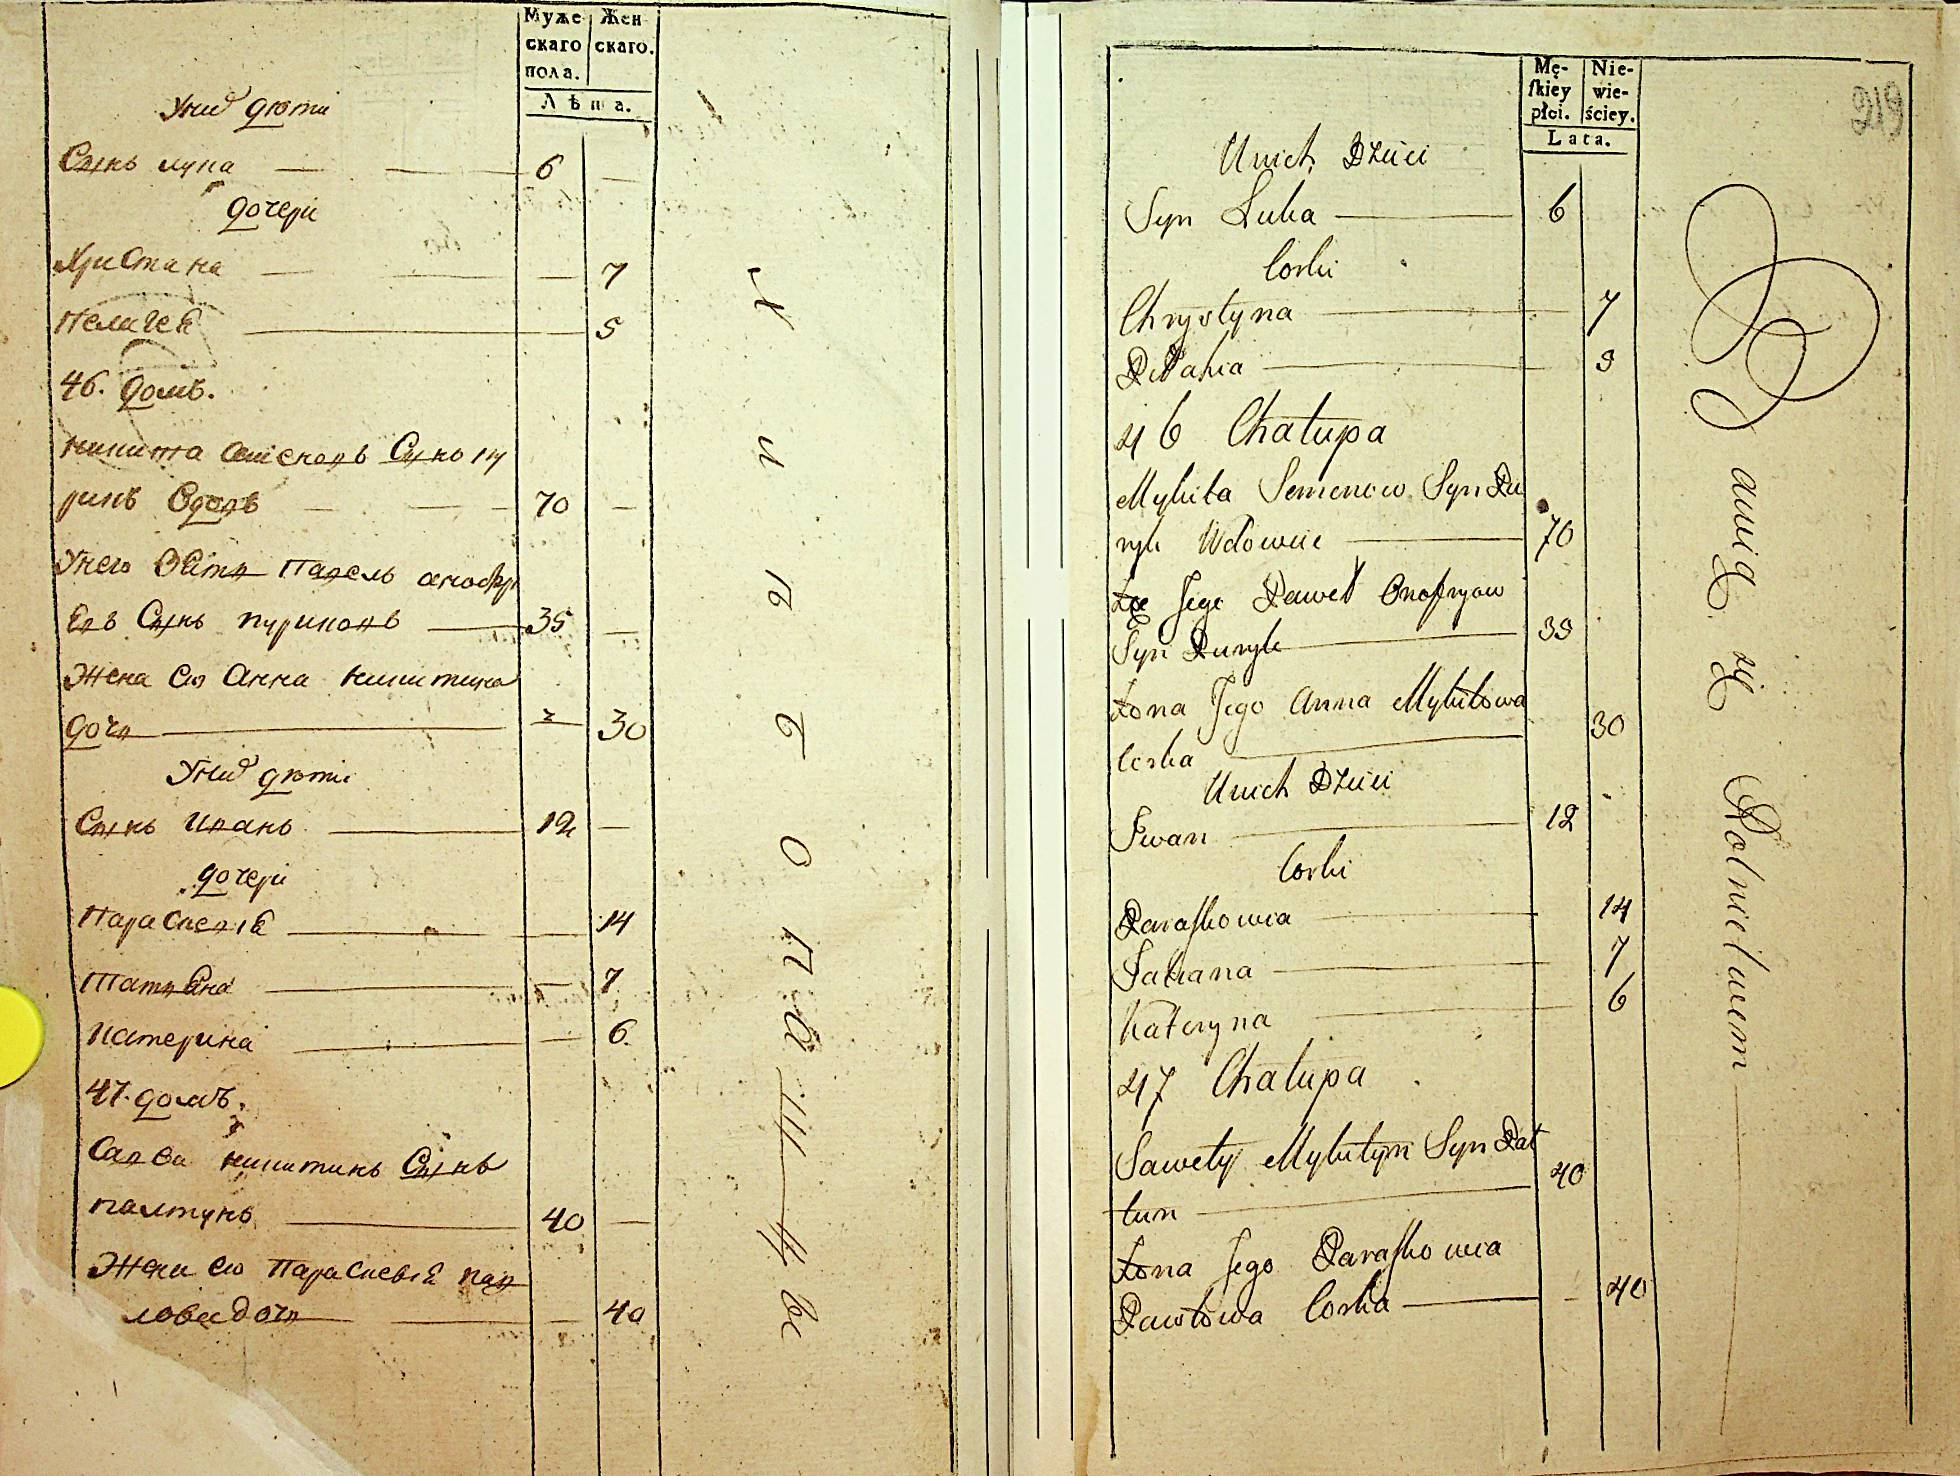 Муже
скаго
пола.
Жен
скаго.
Лѣта.
У них дѣти
Сынъ лука 6
дочери
Христина 7
Пелагея 5
46. домъ.
никита семеновъ Сынъ пу
рикъ вдовъ 70
У него зять Павелъ онофрі
евъ Сынъ пуриковъ 35
Жена его Анна никитина
дочь 30
У них дѣти
Сынъ Иванъ 12
дочери
Парасковія 14
татьяна 7
катерина 6
47. домъ.
никитинъ Сынъ
палтунъ 40
Жена его Парасковія пав
лова дочь 40
Mę-
skiey
płci.
Nie-
wie-
ściey.
Lata.
219
U nich Dzieci
Syn Łuka 6
Corki
Chrystyna 7
Pelahia 5
46 Chałupa
Mykita Semenow Syn Pu
ryk Wdowiec 70
Jego Paweł Onofryow
Syn Puryk 35
Żona Jego Anna Mykitowa
Corka 30
U nich Dzieci
Iwan 12
Corki
Paraskowia 14
Tatiana 7
Kateryna 6
47 Chałupa
Sawety Mykityn Syn Pał
tun 40
Żona Jego Paraskowia
Pawłowa Corka 40
Bawią się Rolnictwem